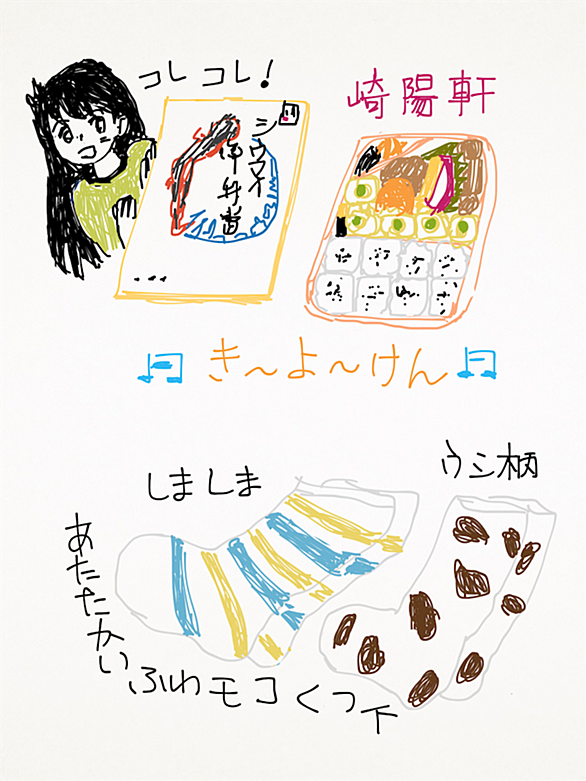 コレコレ!
崎陽軒
シウマイ
弁当
き〜よ〜けん
しましま
ウシ柄
あたたかい
ふわモコくつ下